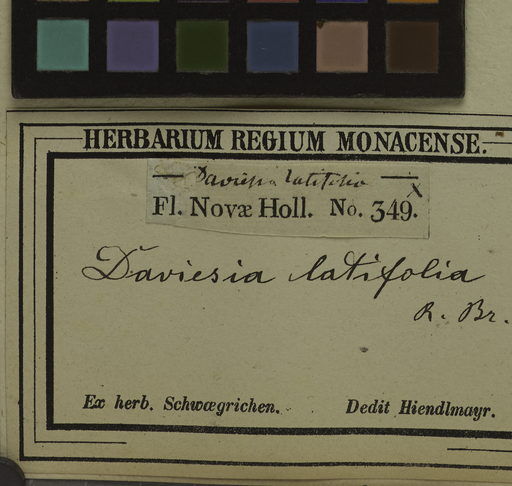 HERBARIUM REGIUM MONACENSE.
— Daviesia latifolia —
Fl. Novæ Holl. No. 349.
Daviesia latifolia
R. Br.
Ex herb. Schwægrichen. Dedit Hiendlmayr.